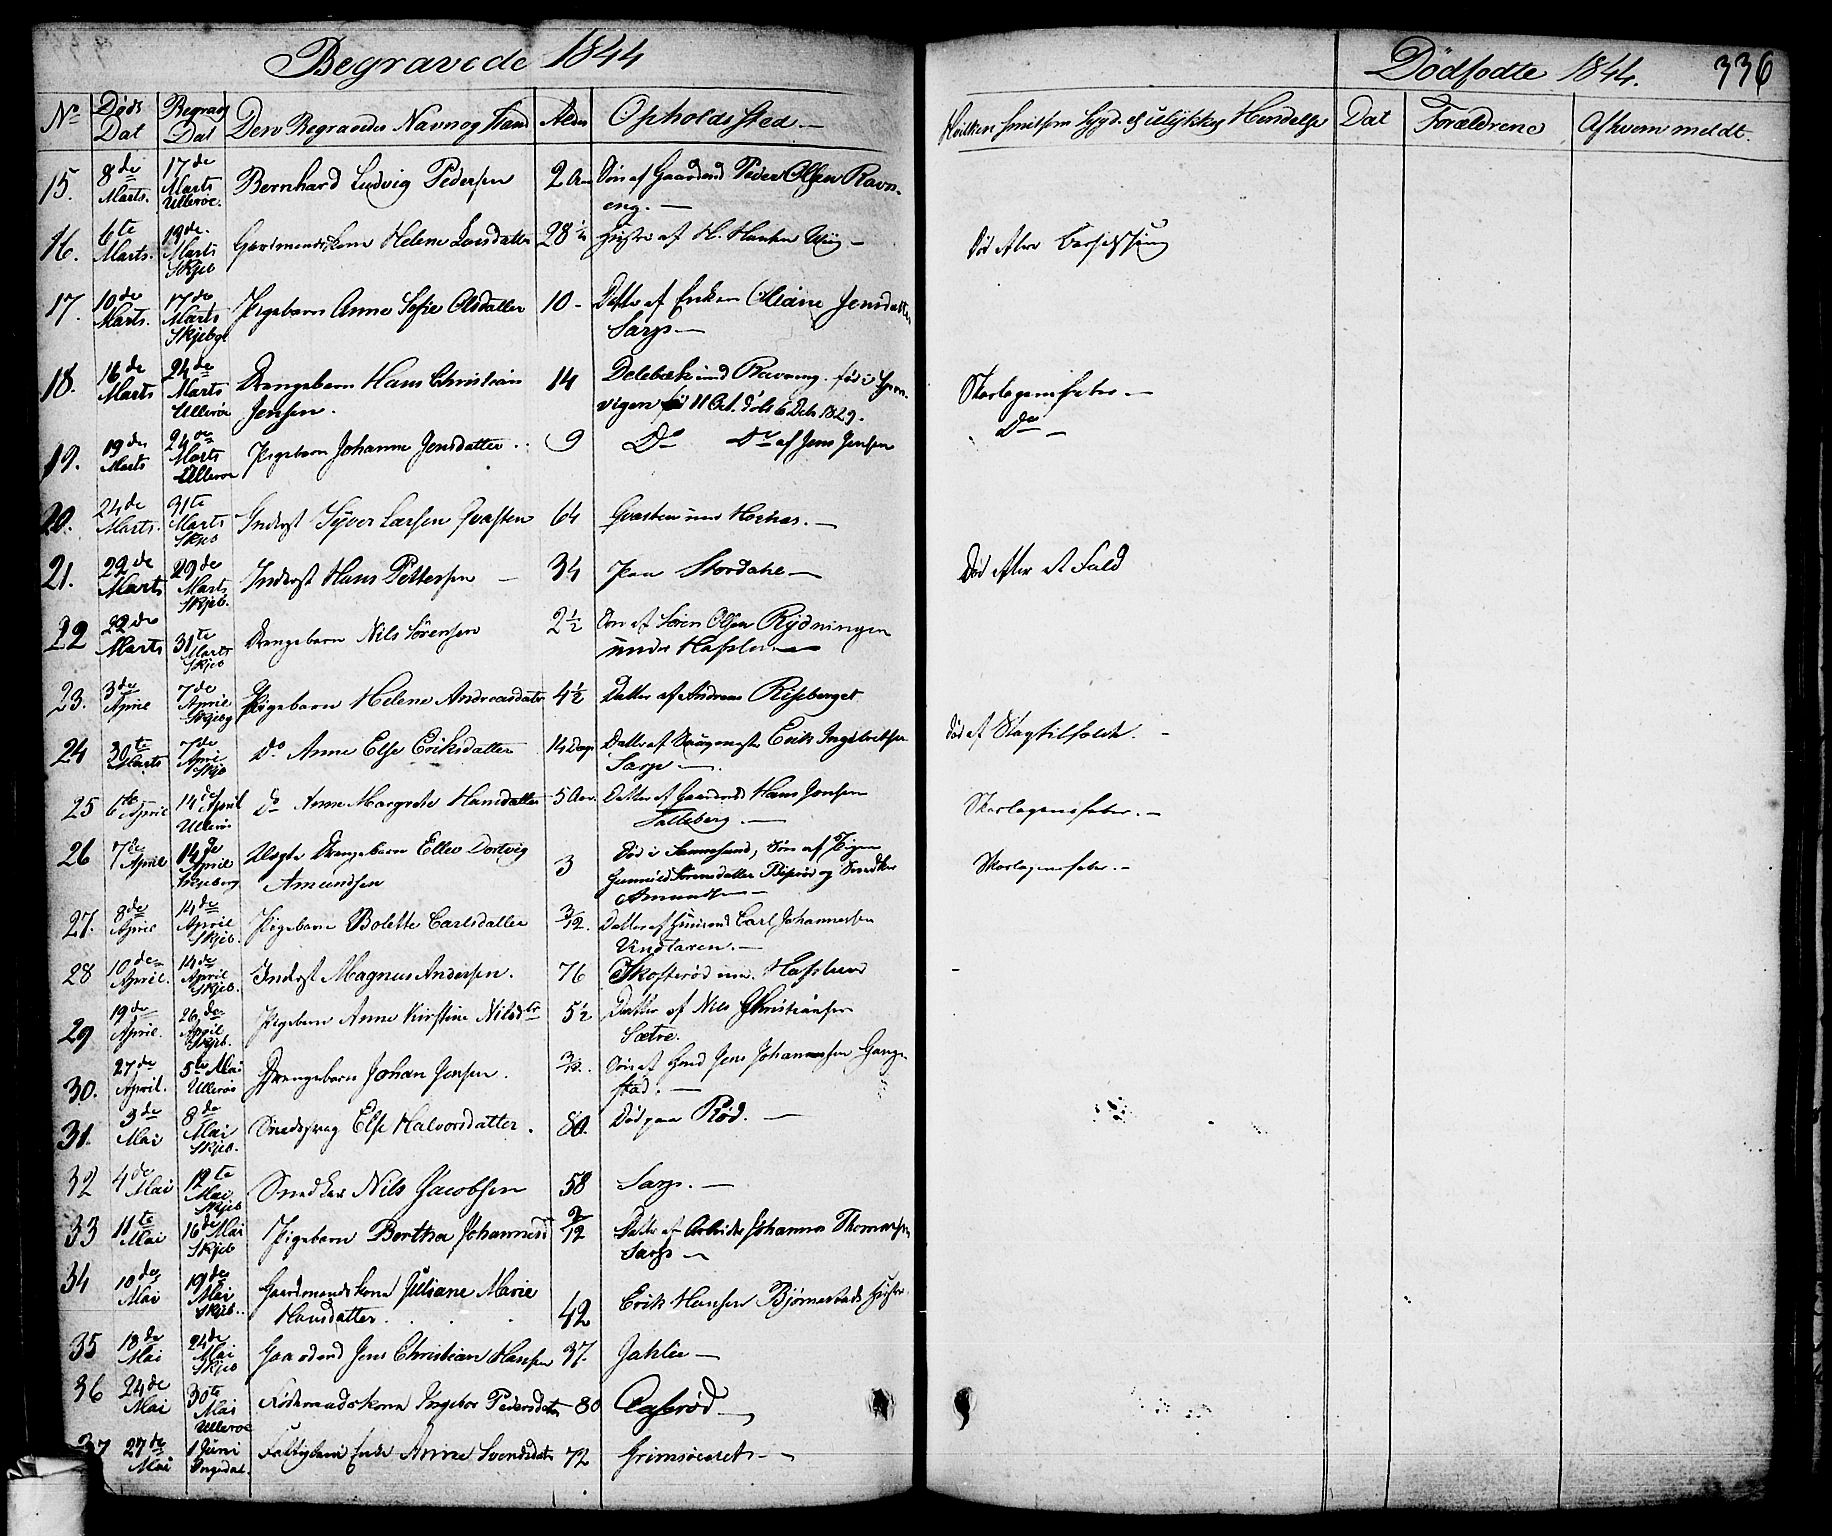 Begravede 1844
Dødfødte 1844. 336
No Døds Dat Begrav Dat Den Begravedes Navn og Stand Alder Opholdssted.
Hvilken smitsom Sygd. el. ulykkelig Hendelse Dat Forældrene Af hvem meldt.
15. 8de Marts. 17de Marts Ullerøe. Bernhard Ludvig Pedersen 2 Aar Søn af Gaardmd Peder Olsen Ravneng.
16. 6te Marts. 19de Marts Skjeb Gaardmandskone Helene Larsdatter 28 1/2 Hustru af H. Hansen
Død efter Barselseng
17. 10de Marts. 17de Marts Skjebg Pigebarn Anne Sofie Olsdatter 10 Datter af Enken Oleane Jensdatter
Sarps
18. 16de Marts 24de Marts Ullerøe Drengebarn Hans Christian 14 Delebæk und Ravneng. fød i
Jensen. vigen 11 Oct. døbt 6 Deb. 1829.
Skarlagensfeber.
19. 19de Marts 24de Marts Ullerøe Pigebarn Johanne Jensdatter 9 Do Do af Jens Jensen
Do
20. 24de Marts. 31te Marts Skjeb Inderst Syver Larsen Qvasten 64 Qvasten
21. 22de Marts 29de Marts Skjeb. Inderst Hans Pettersen 34 paa Stordahl
Død efter et Fald
22 22de Marts 31te Marts Skjeb Drengebarn Nils Sørensen 2 1/2 Søn af Søren Olsen Rydningen
under Hafslund
23. 3de April 7de April Skjebg Pigebarn Helene Andreasdatr 4 1/2 Datter af Andreas Risberget
24 30te Marts 7de April Skjeb Do Anne Else Eriksdatter 14 Dage Datter af Erik Ingebretsen
Sarps
Død af Slagtilfælde.
25 6te April 14de April Ullerøe Do Anne Margrete Hansdatter 5 Aar. Datter af Gaardmd Hans Jensen
Talleberg.
Skarlagensfeber.
26 7de April 14de April Skjeberg Uægte Drengebarn Ellev Dortvig 3 Død i Sannesund, Søn af Pigen
Amundsen Gunnild Sørensdatter og Snedker
Amundsen
Skarlagensfeber.
27. 8de April 14de April Skjeb. Pigebarn Bolette Carlsdatter 3/12. Datter af Huusmd Carl Johannessen
Vingtaren.
28 10de April. 14de April Skjeb. Inderst Magnus Andersen. 76 Skofterød und. Hafslund
29 19de April. 26de April Skjeb. Pigebarn Anne Kirstine Nilsdtr 5 1/2 Datter af Nils Christiansen
Sætre.
30. 27de April. 5te Mai Ullerøe Drengebarn Johan Jensen. Søn af Gmd Jens Johannessen Gangestad.
31. 3de Mai 8de Mai Skjeb. Else Halvorsdatter. 80. Død paa Rød.
32 4de Mai 12te Mai Skjeb Snedker Nils Jacobsen 58 Sarps.
33 11te Mai 16de Mai Skjeb Pigebarn Berthe Johannesd 2/12 Datter af Arbeider Johannes Thomassen
Sarps
34 10de Mai 19de Mai Skjeb. Gaardmandskone Juliane Marie
Hansdatter. 42 Erik Hansen Bjørnestads Hustru
35 18de Mai 24de Mai Skjeb Gaardmd Jens Christian Hansen 37. Jahlie
36 24de Mai 30te Mai Ullerøe Føderaadskone Ingebor Pedersdatr 80 Aaserød
37 27de Mai 1 Juni Ingedal Fattiglem Enke Anne Svendsdatr 72 Grimsøen